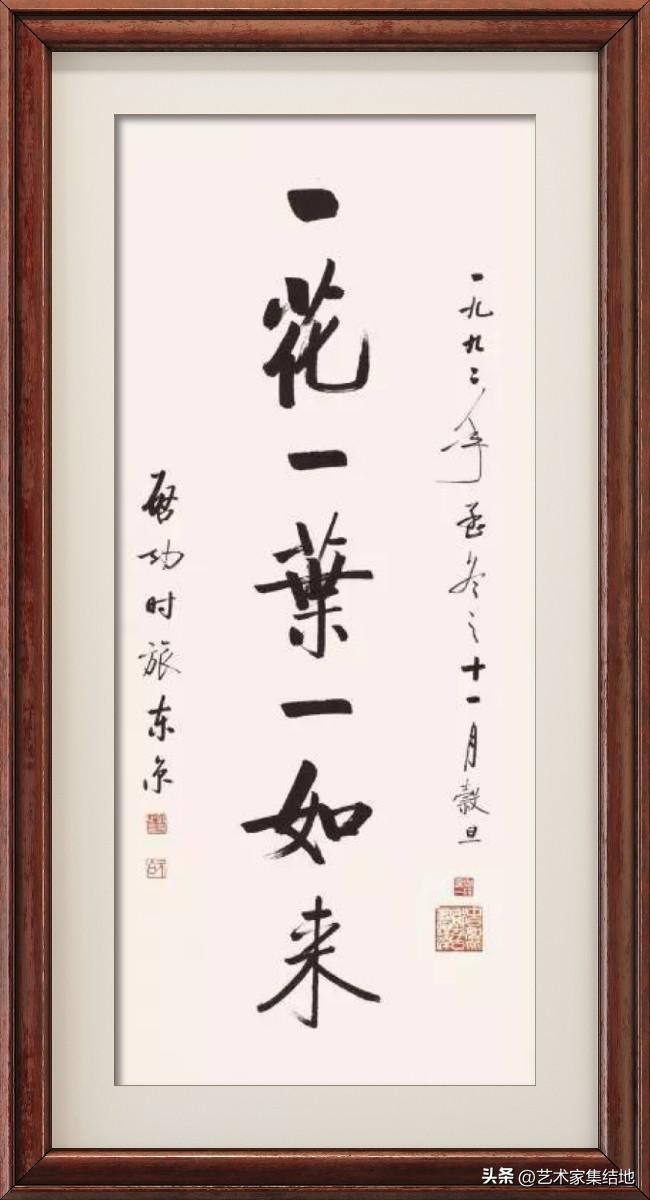 一九九二年孟冬之十一月穀旦
一花一葉一如来
啓功时旅东京
头条 @艺术家集结地